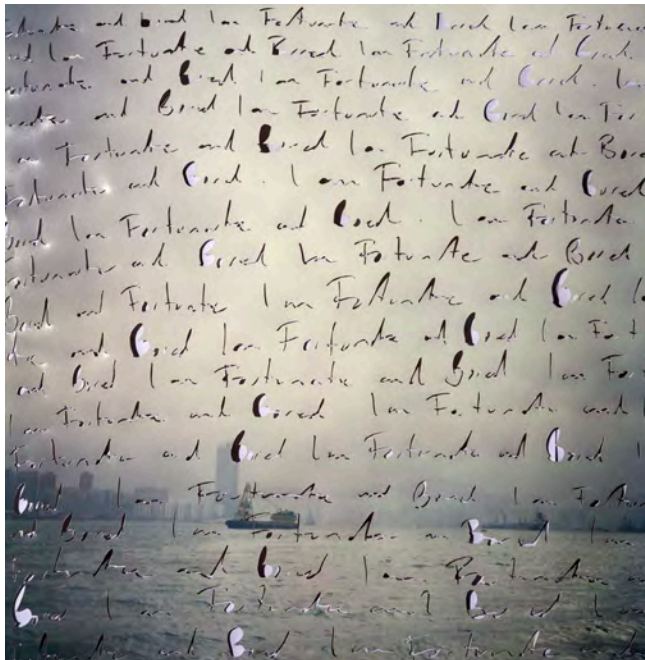 Fortunate and bored I am Fortunate and bored I am Fortunate
and I am Fortunate and Bored I am Fortunate and Bored.
Fortunate and Bored I am Fortunate and Bored. I am
and Bored I am Fortunate and Bored I am For
am Fortunate and Bored I am Fortunate and Bored
Fortunate and Bored. I am Fortunate and Bored
Bored I am Fortunate and Bored. I am Fortunate
Fortunate and Bored I am Fortunate and Bored
Bored and Fortunate I am Fortunate and Bored
and Bored I am Fortunate and Bored I am Fort
and Bored I am Fortunate and Bored I am For
I am Fortunate and Bored I am Fortunate and
Fortunate and Bored I am Fortunate and Bored I
Bored I am Fortunate and Bored I am Fortun
and Bored I am Fortunate an Bored I am
Fortunate and Bored I am Fortunate
Bored I am Fortunate and Bored I am
Fortunate and Bored I am Fortunate and